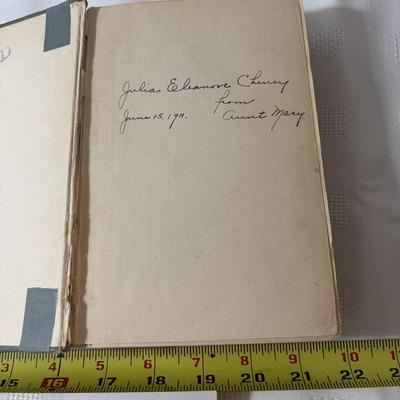 Julia Eleanore Cheney
from
June 15, 1911. Aunt Mary
3 4 5 6 7 8 9 10 11
15 16 17 18 19 20 21 22 23 24 25 26